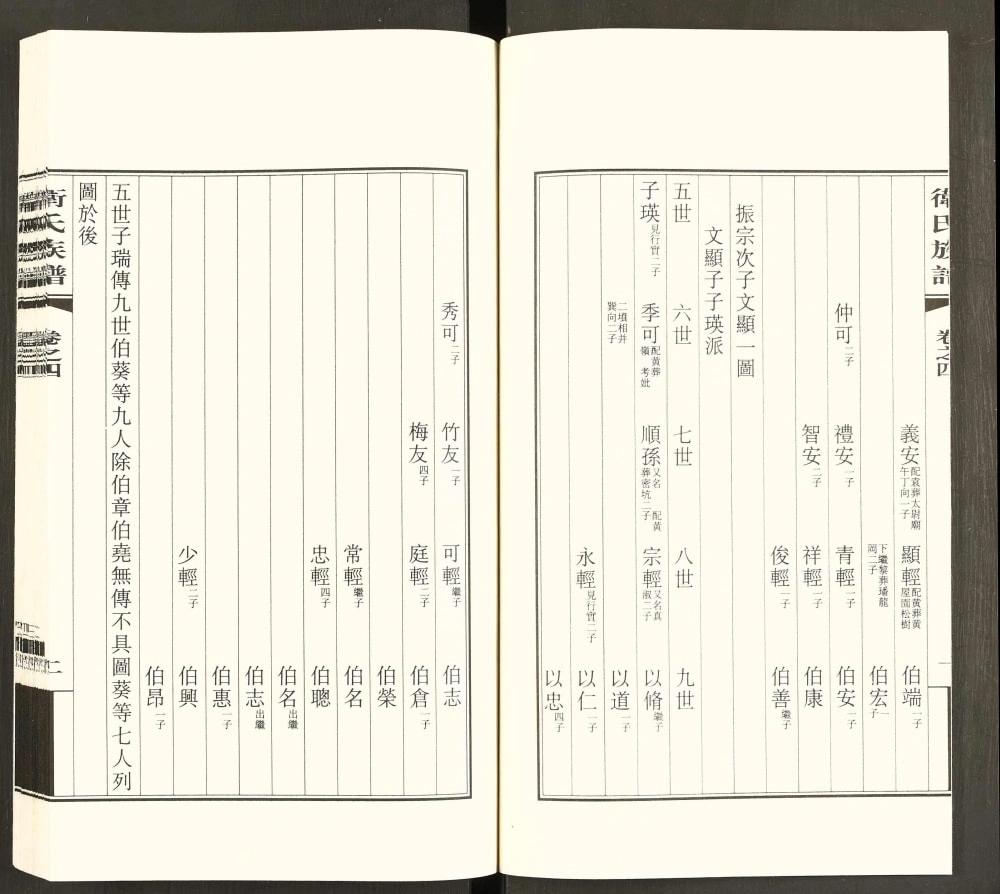 衛氏族譜 卷之四 一
義安 配袁葬太尉廟午丁向一子 顯輕 配黄葬黄屋園松樹 伯端 一子
下繼黎葬璠龍岡二子 伯宏 一子
仲可 二子 禮安 一子 青輕 一子 伯安 一子
智安 二子 祥輕 一子 伯康
俊輕 一子 伯善 繼子
振宗次子文顯一圖
文顯子子瑛派
五世 六世 七世 八世 九世
子瑛 見行實二子 季可 配黄葬嶺考妣 順孫 又名 配黄葬密坑二子 宗輕 又名真淑二子 以脩 繼子
二墳相并巽向二子 以道 一子
永輕 見行實二子 以仁 一子
以忠 四子
秀可 二子 竹友 一子 可輕 繼子 伯志
梅友 四子 庭輕 二子 伯倉 一子
伯榮
常輕 繼子 伯名
忠輕 四子 伯聰
伯名 出繼
伯志 出繼
伯惠 一子
少輕 二子 伯興
伯昂 一子
五世子瑞傳九世伯葵等九人除伯章伯堯無傳不具圖葵等七人列
圖於後
衛氏族譜 卷之四 二